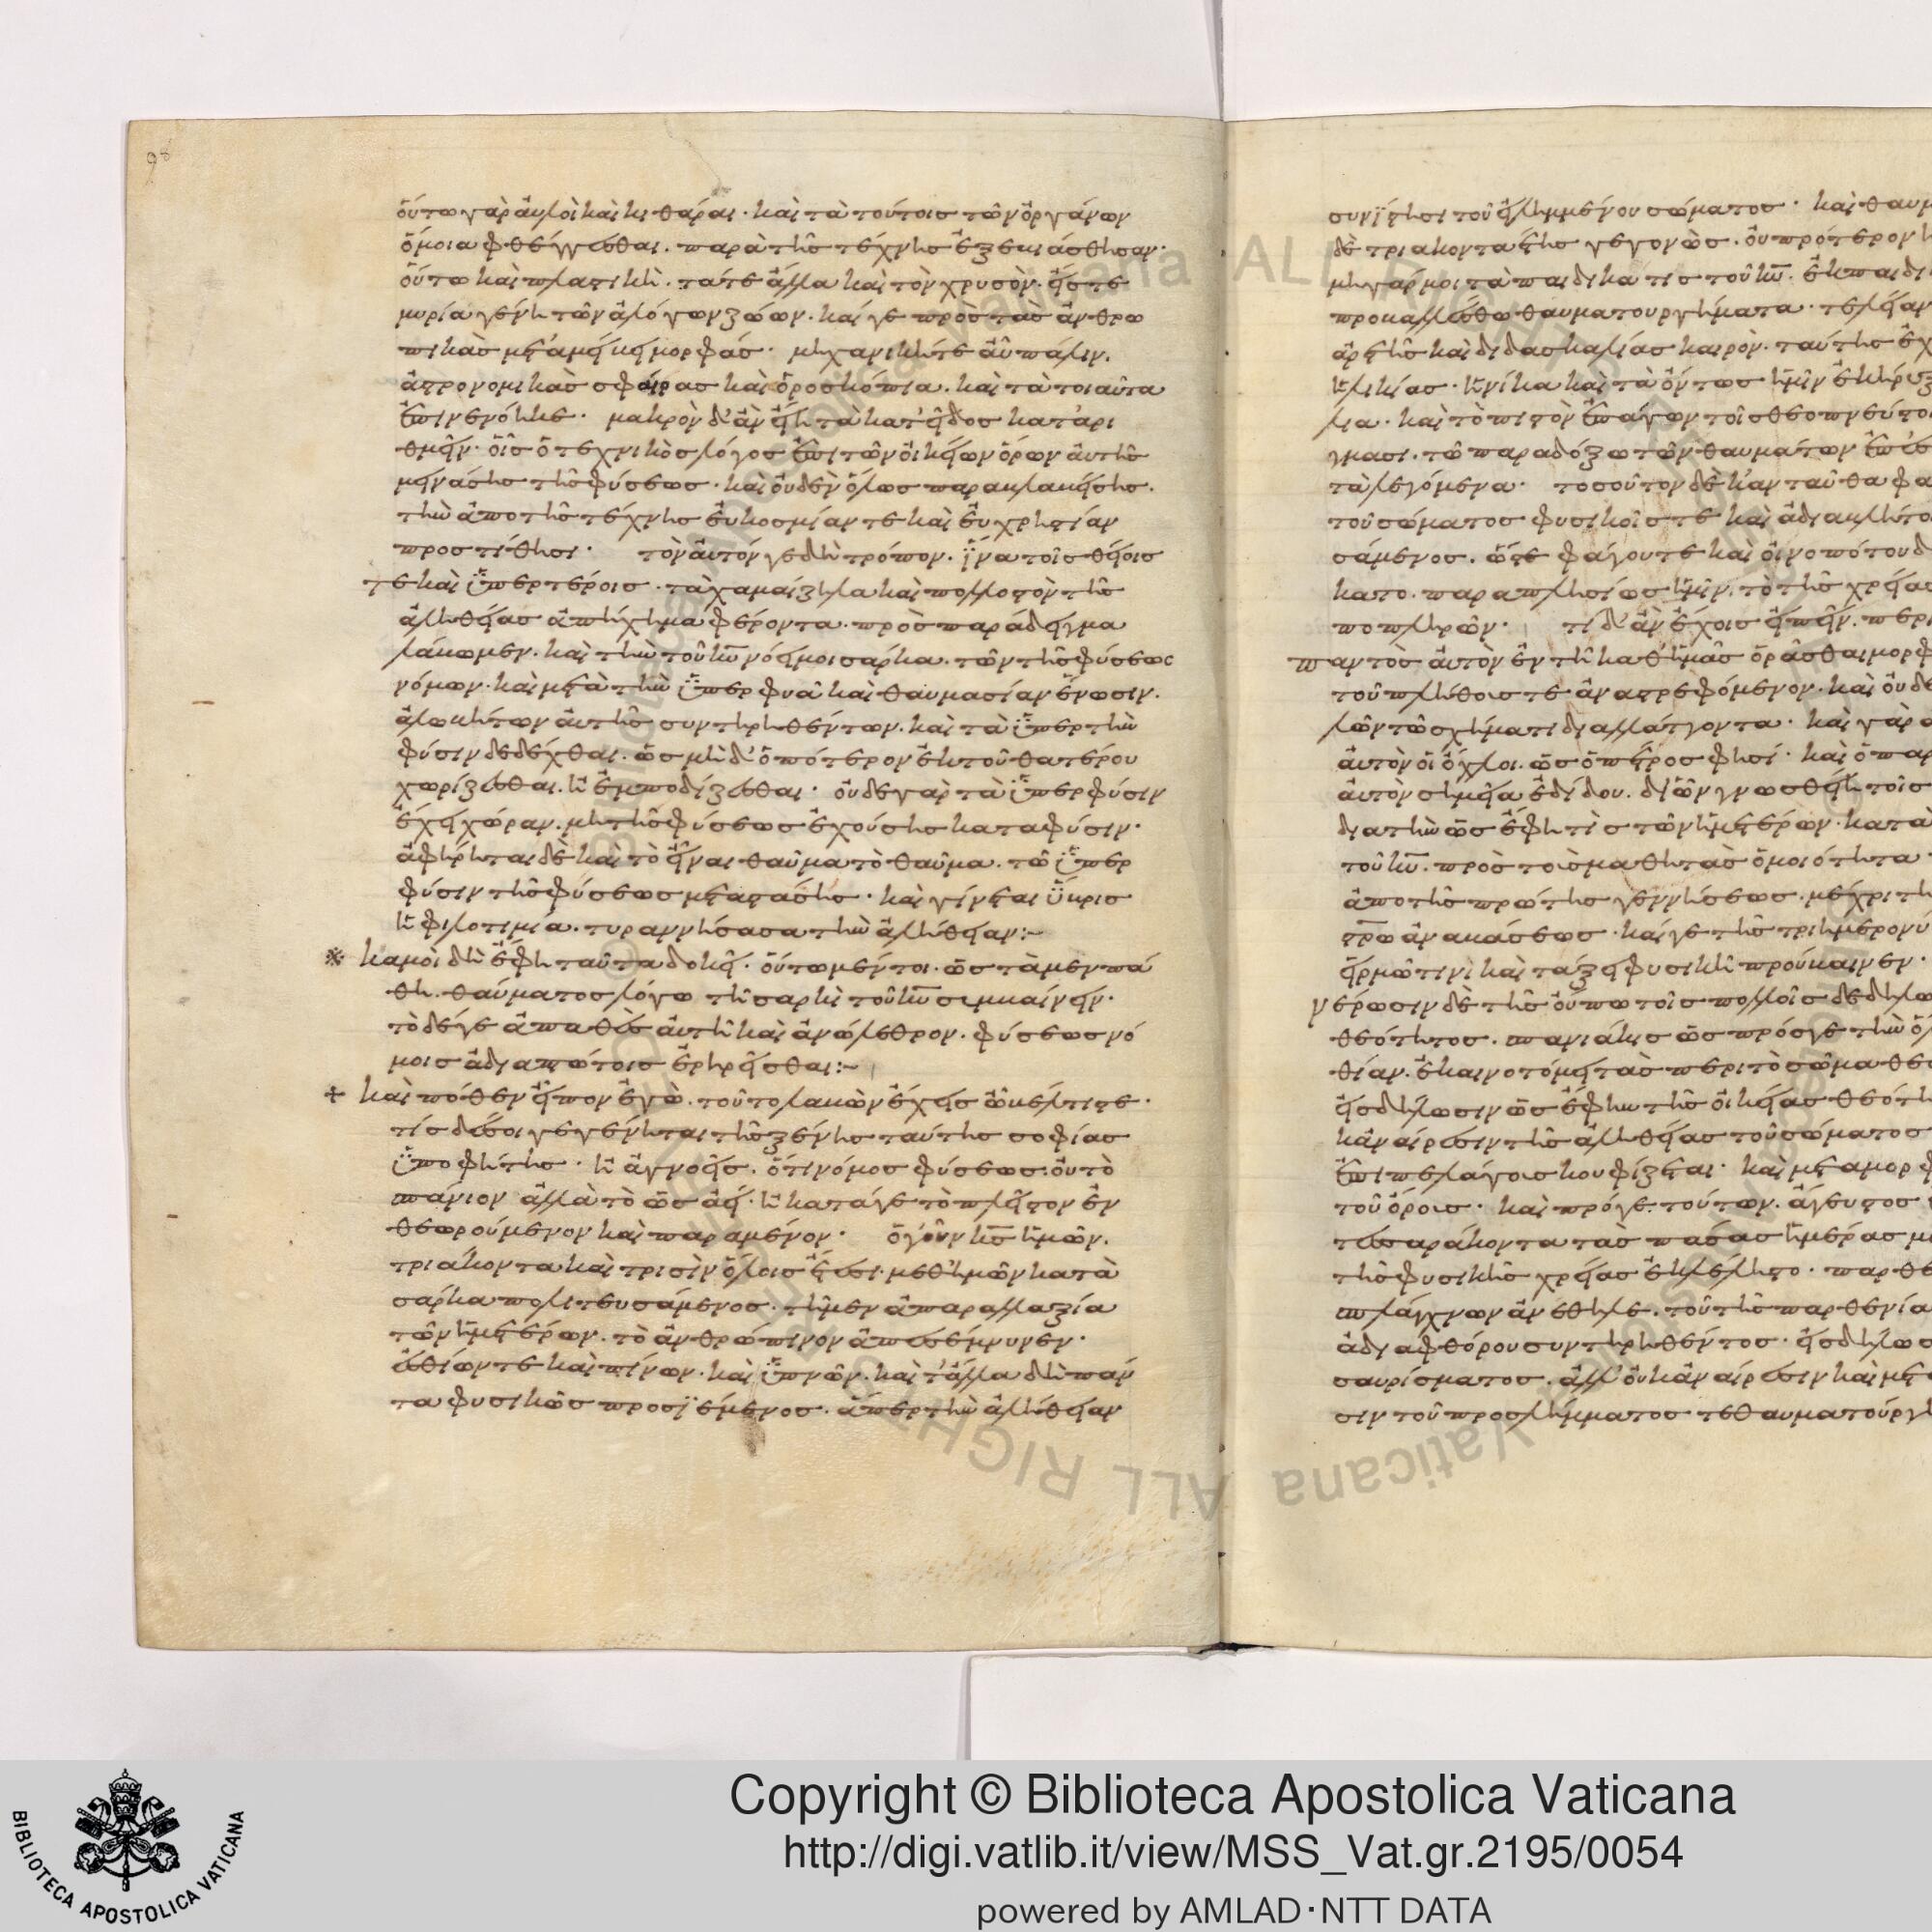 98
οὕτω γὰρ αὐλοὶ καὶ κιθάραι· καὶ τὰ τούτοις τῶν ὀργάνων
ὅμοια φθέγγεσθαι. παρὰ τῆς τέχνης ἐξεβιάσθησαν·
οὕτω καὶ πλαστικὴ. τά τε ἄλλα καὶ τὸν χρυσὸν. εἴς τε
μυρία γένη τῶν ἀλόγων ζώων. καί γε πρὸς τὰς ἀνθρω
πικὰς μεταμείβει μορφάς· μηχανικήτε αὖ πάλιν.
ἀστρονομικὰς σφαίρας καὶ ὡροσκόπια. καὶ τὰ τοιαῦτα
ἐπινενόηκε· μακρὸν δ' ἂν εἴη τὰ κατ' εἶδος καταρι
θμεῖν· οἷς ὁ τεχνικὸς λόγος ἐπὶ τῶν οἰκείων ὅρων αὐτῆς
μεινάσης τῆς φύσεως· καὶ οὐδὲν ὅλως παρακλαπείσης.
τὴν ἀπὸ τῆς τέχνης εὐκοσμίαν τε καὶ εὐχρηστίαν
προστίθησι· τὸν αὐτόν γε δὴ τρόπον. ἵνα τοῖς θείοις
τε καὶ ὑπερτέροις. τὰ χαμαίζηλα καὶ πολλοστὸν τῆς
ἀληθείας ἀπήχημα φέροντα. πρὸς παράδειγμα
λάβωμεν. καὶ τὴν τοῦ κυ νόει μοι σάρκα. τῶν τῆς φύσεως
νόμων. καὶ μετὰ τὴν ὑπερφυᾶ καὶ θαυμασίαν ἕνωσιν.
ἀλωβήτων αὐτῆς συντηρηθέντων. καὶ τὰ ὑπὲρ τὴν
φύσιν δεδέχθαι. ὡς μὴ δ' ὁπότερον ἐκ τοῦ θατέρου
χωρίζεσθαι. ἢ ἐμποδίζεσθαι· οὐδε γὰρ τὰ ὑπὲρ φύσιν
ἔχει χώραν. μὴ τῆς φύσεως ἐχούσης κατα φύσιν·
ἀφήρηται δὲ καὶ τὸ εἶναι θαῦμα τὸ θαῦμα. τῶ ὑπὲρ
φύσιν τῆς φύσεως μεταστάσης· καὶ γίνεται ὕβρις
ἡ φιλοτιμία. τυραννήσασα τὴν ἀλήθειαν:~
※ κἀμοι δὴ ἔφη ταῦτα δοκεῖ· οὕτω μέντοι. ὡς τὰ μεν πά
θη. θαύματος λόγω τῆ σαρκὶ τοῦ κυ συμβαίνειν·
τὸ δέ γε ἀπαθὲς αὐτῆ καὶ ἀνώλεθρον. φύσεως νό
μοις ἀδιαπτώτοις ἐρηρεῖσθαι:~
+ καὶ πόθεν εἶπον ἐγὼ. τοῦτο λαβὼν ἔχεις ὦ βέλτιστε·
τίς δέ σοι γεγένηται τῆς ξένης ταύτης σοφίας
ὑποφήτης· ἢ ἀγνοεῖς. ὅτι νόμος φύσεως. οὐ τὸ
σπάνιον ἀλλὰ τὸ ὡς ἀεὶ· ἢ κατά γε τὸ πλεῖστον ἐν
θεωρούμενον καὶ παραμένον· ὁ γοῦν κς ἡμῶν.
τριάκοντα καὶ τρισὶν ὅλοις ἔτεσι. μεθ' ἡμῶν κατὰ
σάρκα πολιτευσάμενος. τῆ μεν ἀπαραλλαξία
τῶν ἡμετέρων. τὸ ἀνθρώπινον ἀπεσέμνυνεν·
ἐσθίων τε καὶ πίνων. καὶ ὑπνῶν. καὶ τἄλλα δὴ πάν
τα φυσικῶς προσϊέμενος. ἅπερ τὴν ἀλήθειαν
συνΐστησι τοῦ εἰλημμένου σώματος· καὶ θαυμ
δὲ τριακονταέτης γεγονὼς. οὐ πρότερον
μὴ γάρ μοι τὰ παιδικά τις τοῦ κυ. ἐκ παιδι
προκαλλέσθω θαυματουργήματα. τελείαν
ἀρετῆς καὶ διδασκαλίας καιρὸν. ταύτης ἐχ
ἡλικίας. ἡνίκα καὶ τὰ ὄντως ἡμῖν ἐκήρυξ
λια. καὶ τὸ πιστὸν ἐπάγων τοῖς θεοπνεύστοι
γμασι. τῶ παραδόξω τῶν θαυμάτων
τὰ λεγόμενα· τοσοῦτον δὲ κἀνταῦθα φα
τοῦ σώματος φυσικοῖς τε καὶ ἀδιαβλήτο
σάμενος. ὥστε φάγου τε καὶ οἰνοπότου δ
κατο. παραπλησίως ἡμῖν. τὸ τῆς χρείας
ποπληρῶν· τί δ' ἂν ἔχοις εἰπεῖν. περι
παντὸς αὐτὸν ἐν τῆ καθ' ἡμᾶς ὁρᾶσθαι μορφ
τοῦ πλήθους τε ἀναστρεφόμενον. καὶ οὐδε
λῶν τῶ σχήματι διαλλάττοντα· καὶ γὰρ
αὐτὸν οἱ ὄχλοι. ὡς ὁ πέτρος φησί· καὶ ὁ παρ
αὐτὸν σημεῖα ἐδίδου. δι' ὧν γνωσθείη τοῖς
δια τὴν ὡς ἔφη τὶς τῶν ἡμετέρων. κατὰ
τοῦ κυ. πρὸς τοὺς μαθητὰς ὁμοιότητα·
ἀπὸ τῆς πρώτης γεννήσεως. μέχρι τῆ
στρω ἀναβάσεως. καί γε τῆς τριημέρου
εἱρμῶ τινὶ καὶ τάξει φυσικῆ προύβαινεν·
νέρωσιν δὲ τῆς οὔπω τοῖς πολλοῖς δεδηλω
θεότητος. σπανιάκις ὡς πρός γε τὴν ὅλ
θίαν. ἐκαινοτόμει τὰς περι τὸ σῶμα
εἰς δήλωσιν ὡς ἔφην τῆς οἰκείας θεότη
κἀναίρεσιν τῆς ἀληθείας τοῦ σώματος
ἐπι πελάγους κουφίζεται· καὶ μεταμορφ
τοῦ ὄρους· καὶ πρόγε. τούτων. ἄγευστος
τεσσαράκοντα τὰς πάσας ἡμέρας μ
τῆς φυσικῆς χρείας ἐκλέληστο. παρθε
σπλάγχνων ἀνέθηλε. τοῦ τῆς παρθενία
ἀδιαφθόρου συντηρηθέντος· εἰς δήλωσ
σαυρίσματος. ἀλλ' οὐκ ἀναίρεσιν καὶ μετ
σιν τοῦ προσλήμματος τεθαυματούργη
Copyright © Biblioteca Apostolica Vaticana
http://digi.vatlib.it/view/MSS_Vat.gr.2195/0054
powered by AMLAD·NTT DATA
BIBLIOTECA APOSTOLICA VATICANA